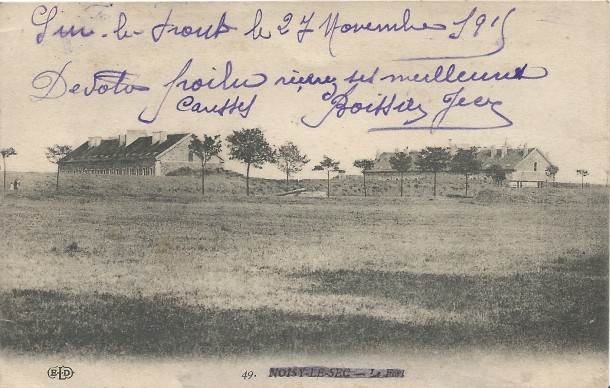 Sur-le-front le 27 Novembre 1915
De votre poilu reçevez ses meilleures
Caresses Boissier
E.L.D
49. NOISY-LE-SEC — Le Fort